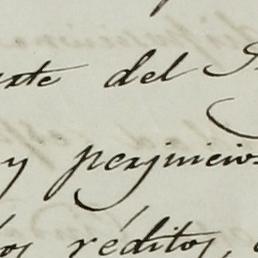 del
y perjuicios
réditos,